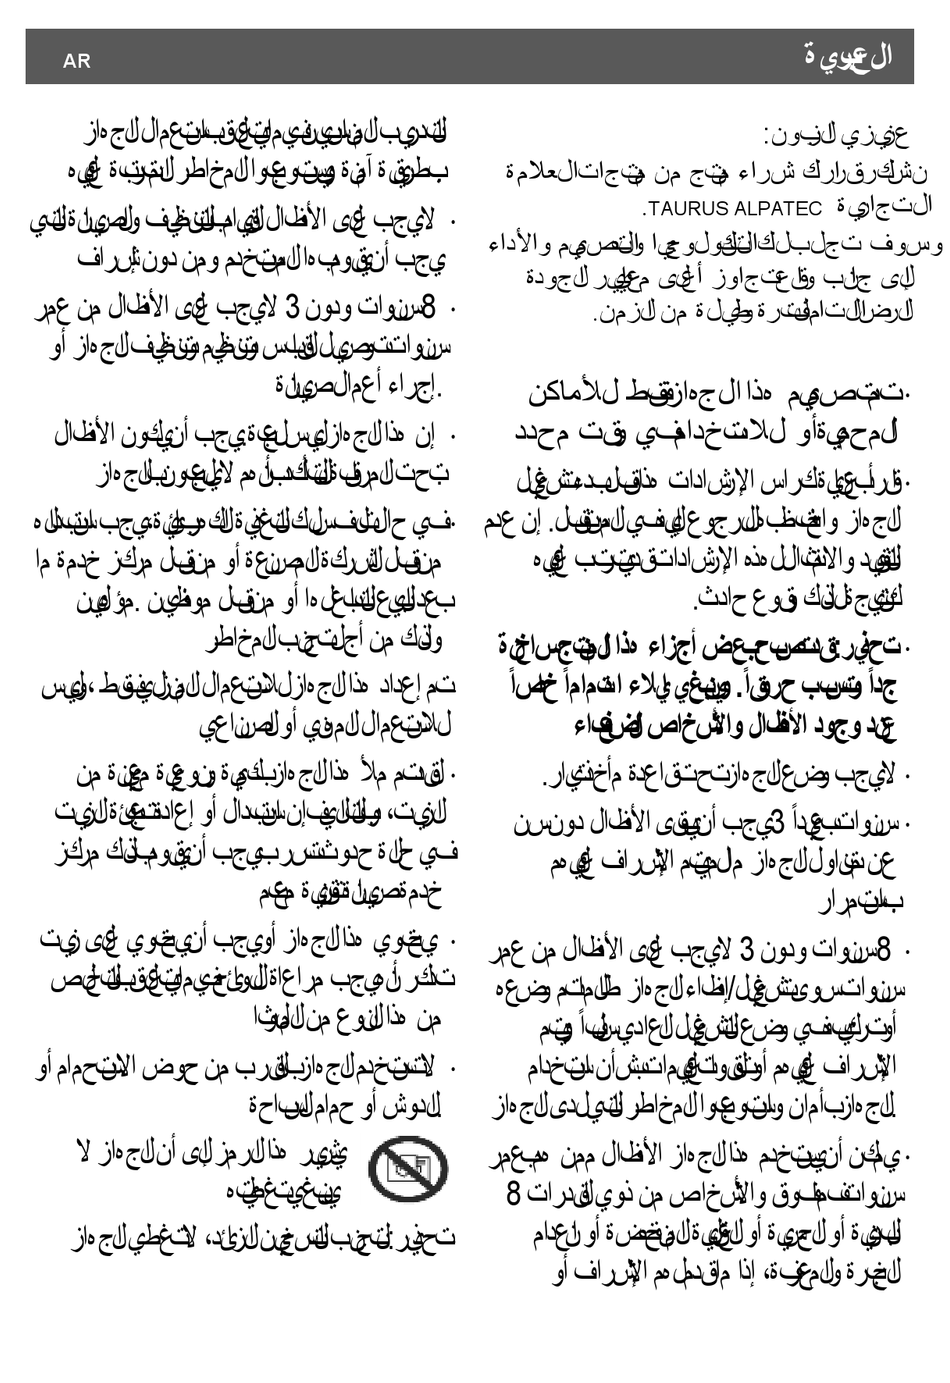 العربية
AR
عزيزي الزبون:
نشكر قرارك شراء منتج من منتجات العلامة
التجارية TAURUS ALPATEC.
وسوف تجلب لك التكنولوجيا والتصميم والأداء
إلى جانب وقاعتجاوز أعلى معايير الجودة
الرضا التام لفترة طويلة من الزمن.
· تم تصميم هذا الجهاز فقط للأماكن
المحمية أو للاستخدام في وقت محدد
· قرأ بعناية كراس الإرشادات هذا قبل بدء تشغيل
الجهاز واحتفظ به للرجوع إليه في المستقبل. إن عدم
التقيد والامتثال لهذه الإرشادات قد يترتب عليه
كنتيجة لذلك وقوع حادث.
· تحذير: قد تصبح بعض أجزاء هذا المنتج ساخنة
جداً وتسبب حرقاً. وينبغي إيلاء اهتماماً خاصاً
عند وجود الأطفال والأشخاص الضعفاء
· لا يجب وضع الجهاز تحت قاعدة مأخذ تيار.
· سنوات بعيداً 3 يجب أن يبقى الأطفال دون سن
عن تناول الجهاز ما لم يتم الإشراف عليهم
باستمرار
· 8 سنوات ودون 3 لا يجب على الأطفال من عمر
سنوات سوى تشغيل/إطفاء الجهاز طالما تم وضعه
أو تركيبه في وضع التشغيل العادي سليماً ويتم
الإشراف عليهم أو تلقوا تعليمات بشأن استخدام
الجهاز بأمان واستوعبوا المخاطر التي لدى الجهاز.
· يمكن أن يستخدم هذا الجهاز الأطفال ممن هم بعمر
سنوات فما فوق والأشخاص من ذوي القدرات 8
البدنية أو الحسية أو العقلية المنخفضة أو انعدام
الخبرة والمعرفة، إذا ما قدم لهم الإشراف أو
التدريب المناسبين فيما يتعلق باستعمال الجهاز
بطريقة آمنة ويستوعبوا المخاطر المترتبة عليه
· لا يجب على الأطفال القيام بالتنظيف والصيانة التي
يجب أن يقوم بها المستخدم ومن دون إشراف
· 8 سنوات ودون 3 لا يجب على الأطفال من عمر
سنوات توصيل القابس وتنظيم وتنظيف الجهاز أو
إجراء أعمال الصيانة.
· إن هذا الجهاز ليس لعبة. يجب أن يكون الأطفال
تحت المراقبة للتأكد بأنهم لا يلعبون بالجهاز
· في حال تلف سلك التغذية الكهربائية، يجب استبداله
من قبل الشركة المصنعة أو من قبل مركز خدمة ما
بعد البيع التابع لها أو من قبل موظفين. مؤهلين
وذلك من أجل تجنب المخاطر
تم إعداد هذا الجهاز للاستعمال المنزلي فقط، وليس
للاستعمال المهني أو الصناعي
· لقد تم ملأ هذا الجهاز بكمية ونوعية معينة من
الزيت، وبالتالي فإن استبدال أو إعادة تعبئة الزيت
في حالة حدوث تسرب يجب أن يقوم بذلك مركز
خدمة صيانة تقنية معتمد
· يحتوي هذا الجهاز أو يجب أن يحتوي على زيت
تذكر أنه يجب مراعاة اللوائح فيما يتعلق بالتخلص
من هذا النوع من الملوثات
· لا تستخدم الجهاز بالقرب من حوض الاستحمام أو
الدوش أو حمام السباحة.
يشير هذا الرمز إلى أن الجهاز لا
ينبغي تغطيته
تحذير: لتجنب التسخين الزائد، لا تغطي الجهاز